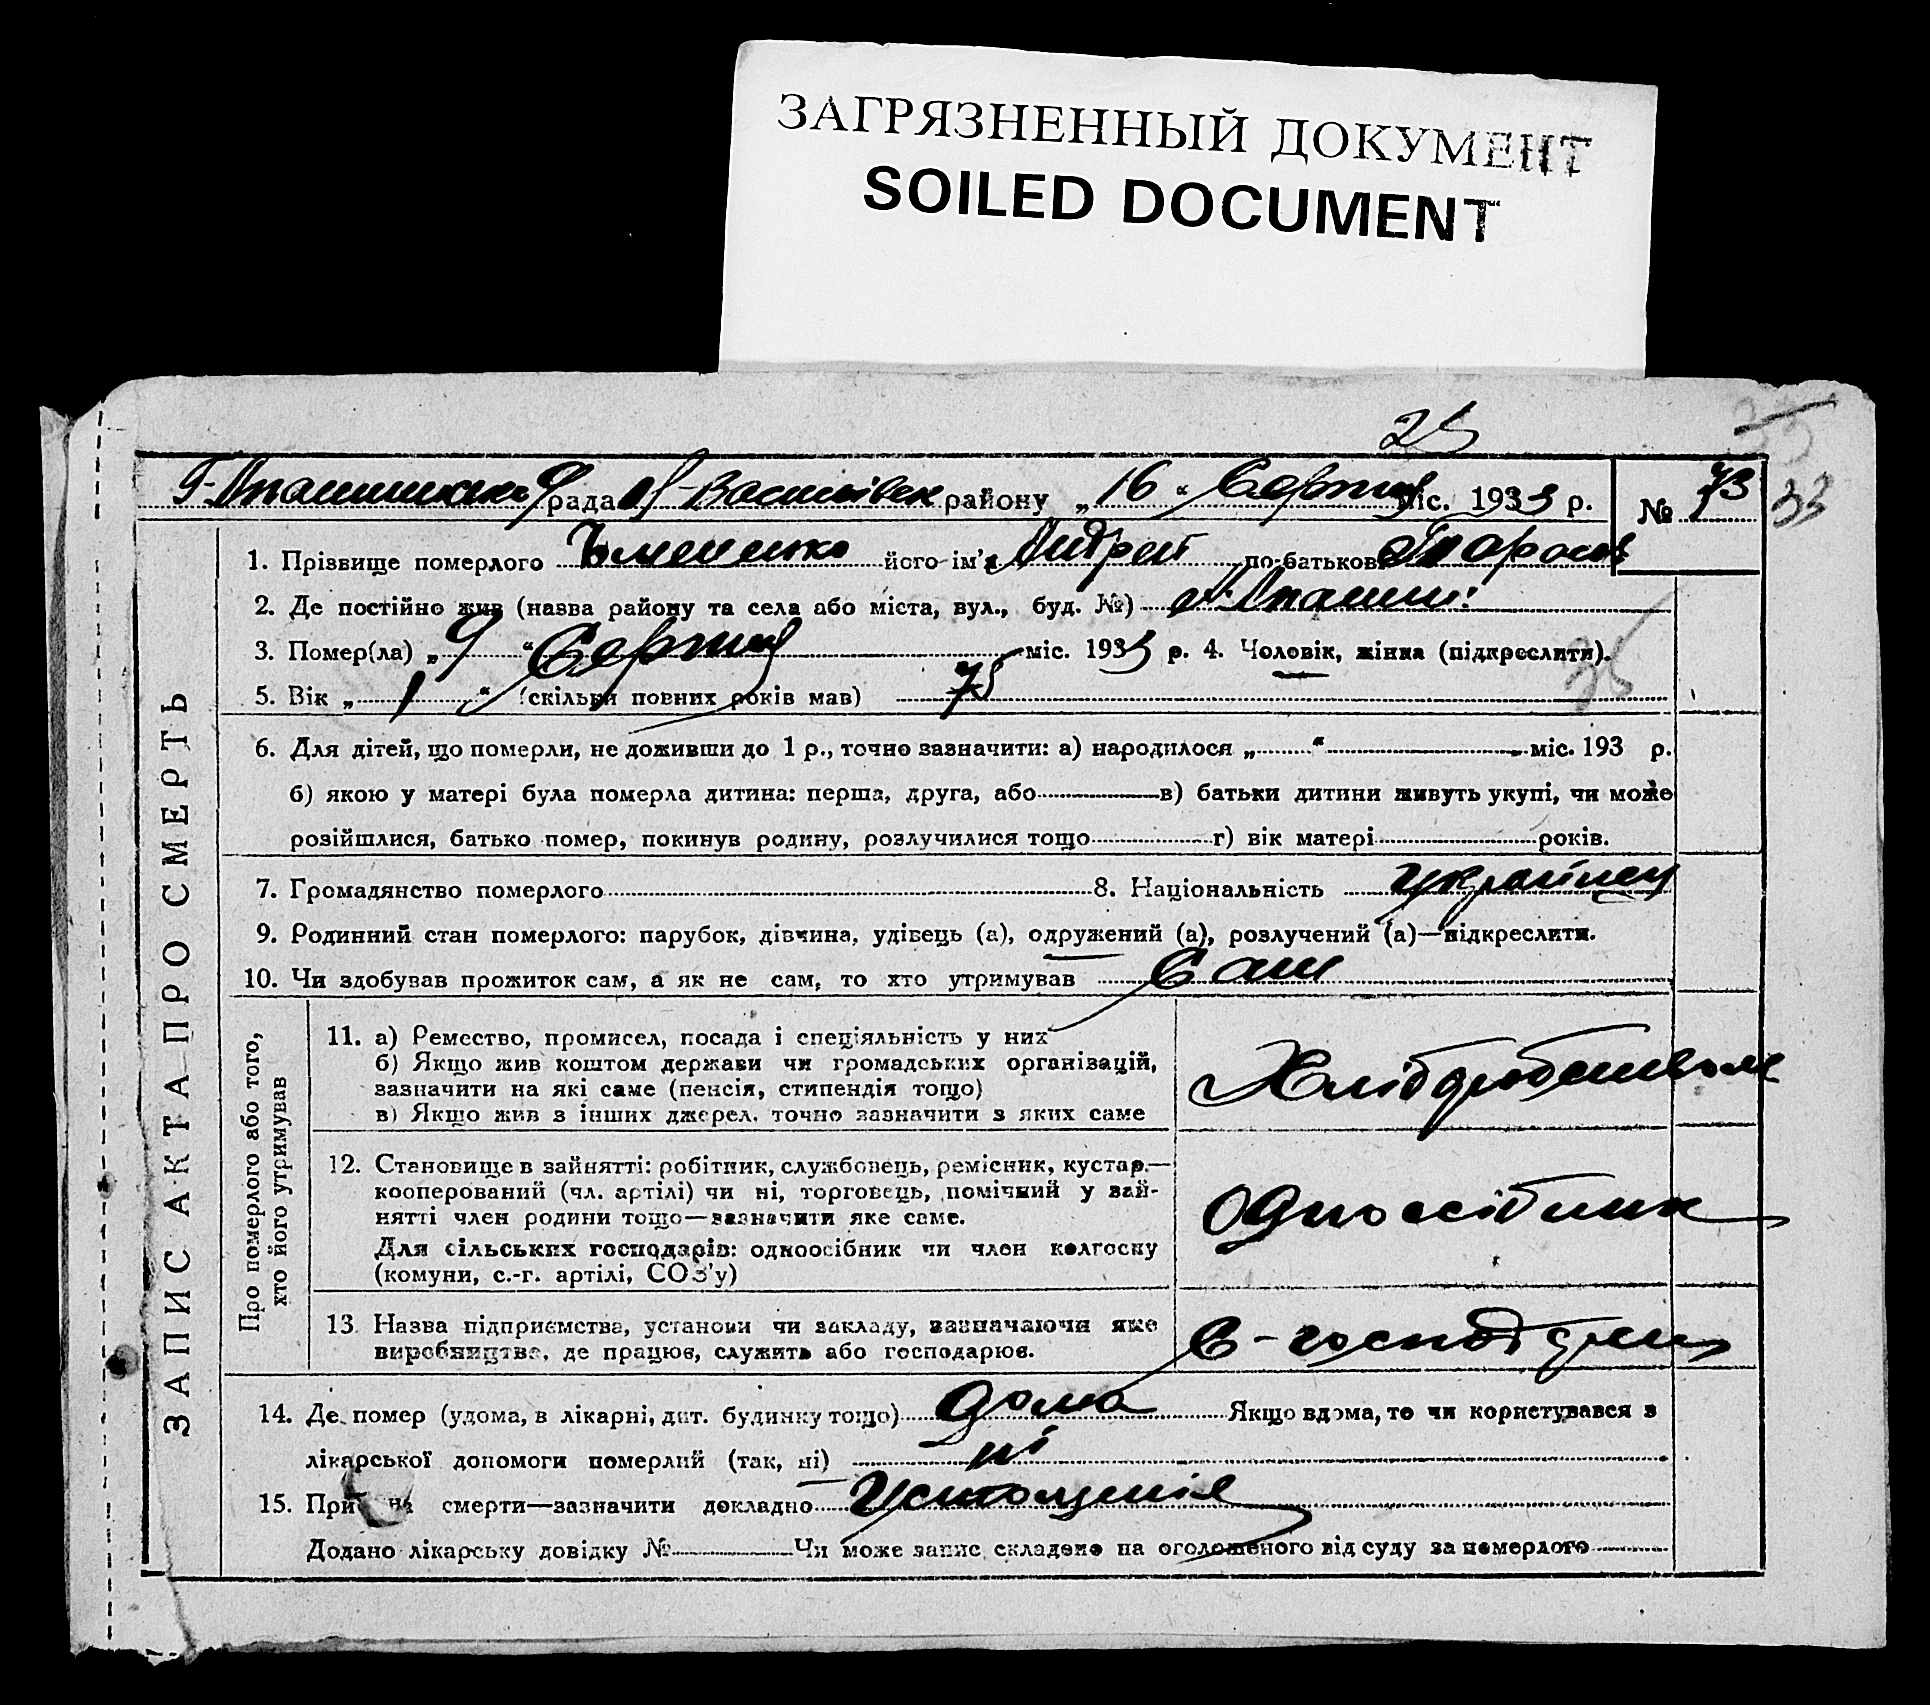 ЗАГРЯЗНЕННЫЙ ДОКУМЕНТ
SOILED DOCUMENT
25
рада районУ „16“ Серпня міс. 1933 р. № 73
33
1. Прізвище померлого його ім'я Андрей по-батькові Тарасов
2. Де постійно жив (назва району та села або міста, вул., буд. №)
3. Помер(ла) „9“ Серпня міс. 1933 р. 4. Чоловік, жінка (підкреслити).
35
5. Вік „1“ (скільки повних років мав) 75
6. Для дітей, що померли, не доживши до 1 р., точно зазначити: а) народилося „ “ міс. 193 р.
б) якою у матері була померла дитина: перша, друга, або в) батьки дитини живуть укупі, чи може
розійшлися, батько помер, покинув родину, розлучилися тощо г) вік матері років.
7. Громадянство померлого 8. Національність Українец
9. Родинний стан померлого: парубок, дівчина, удівець (а), одружений (а), розлучений (а)—підкреслити.
10. Чи здобував прожиток сам, а як не сам, то хто утримував Сам
ЗАПИС АКТА ПРО СМЕРТЬ
Про померлого або того,
хто його утримував
11. а) Ремество, промисел, посада і спеціяльність у них
б) Якщо жив коштом держави чи громадських організацій,
зазначити на які саме (пенсія, стипендія тощо)
в) Якщо жив з інших джерел, точно зазначити з яких саме
Хлібробством
12. Становище в зайнятті: робітник, службовець, ремісник, кустар.—
кооперований (чл. артілі) чи ні, торговець, помічний у зай-
нятті член родини тощо—зазначити яке саме.
Для сільських господарів: одноосібник чи член колгоспу
(комуни, с.-г. артілі, СОЗ'у)
Одноосібник
13. Назва підприємства, установи чи закладу, зазначаючи яке
виробництво, де працює, служить або господарює.
14. Де помер (удома, в лікарні, дит. будинку тощо) Дома Якщо вдома, то чи користувався з
лікарської допомоги померлий (так, ні) ні
15. При на смерти—зазначити докладно Устощенія
Додано лікарську довідку № Чи може запис складено на оголошеного від суду за померлого